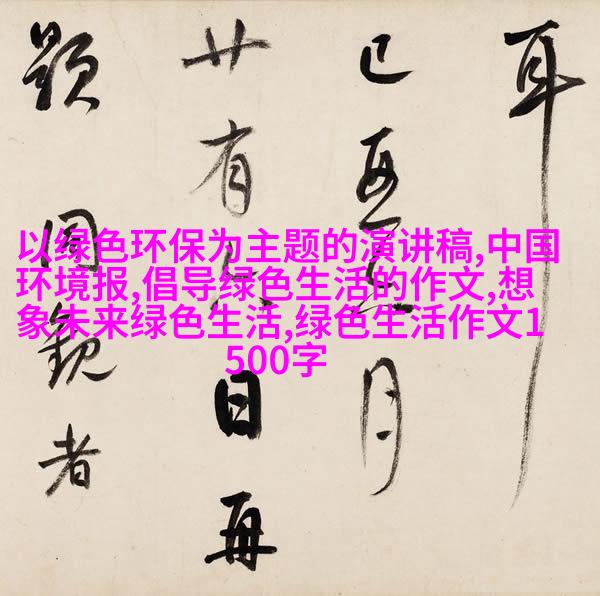 以绿色环保为主题的演讲稿,中国
环境报,倡导绿色生活的作文,想
象未来绿色生活,绿色生活作文1
500字
耳
月
廿有日再
題觀者